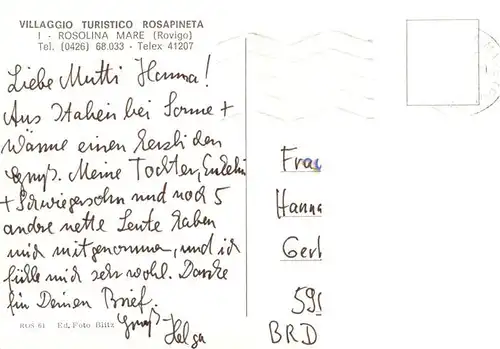 VILLAGGIO TURISTICO ROSAPINETA
I - ROSOLINA MARE (Rovigo)
Tel. (0426) 68.033 - Telex 41207
Liebe Mutti Hanna!
Aus Italien bei Sonne +
Wärme einen herzlichen
Gruß. Meine Tochter, Enkelin
+ Schwiegersohn und noch 5
andre nette Leute haben
mich mitgenommen, und ich
fühle mich sehr wohl. Danke
für Deinen Brief.
Gruß Helga
ROS 61 Ed. Foto Blitz
Frau
Hanna
Gert
595
BRD